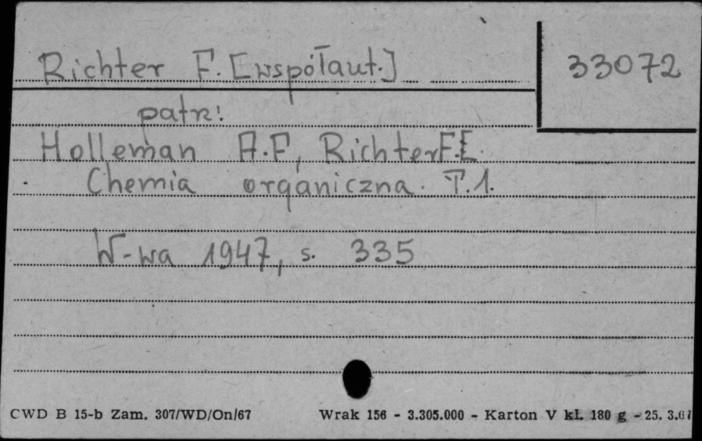 Richter F. [współaut.]
33072
patrz:
Holleman A.F, Richter F.E.
Chemia organiczna. T.1.
W-wa 1947, s. 335
CWD B 15-b Zam. 307/WD/On/67 Wrak 156 - 3.305.000 - Karton V kl. 180 g - 25. 3.67